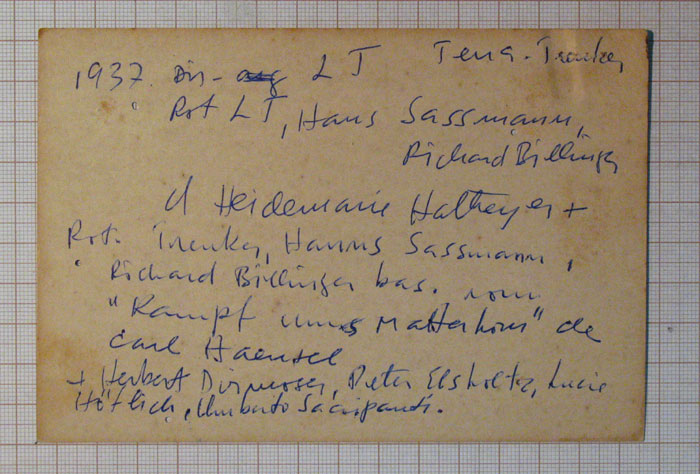 1937. Dir- LT Terra-Trenker
Rot LT, Hans Sassmann,
Richard Billinger
d Heidemarie Hatheyer +
Rot. Trenker, Hanns Sassmann,
Richard Billinger bas. rom
"Kampf ums Matterhorn" de
Carl Haensel
+ Herbert Dirmoser, Peter Elsholtz, Lucie
Höflich, Umberto Sacripanti.